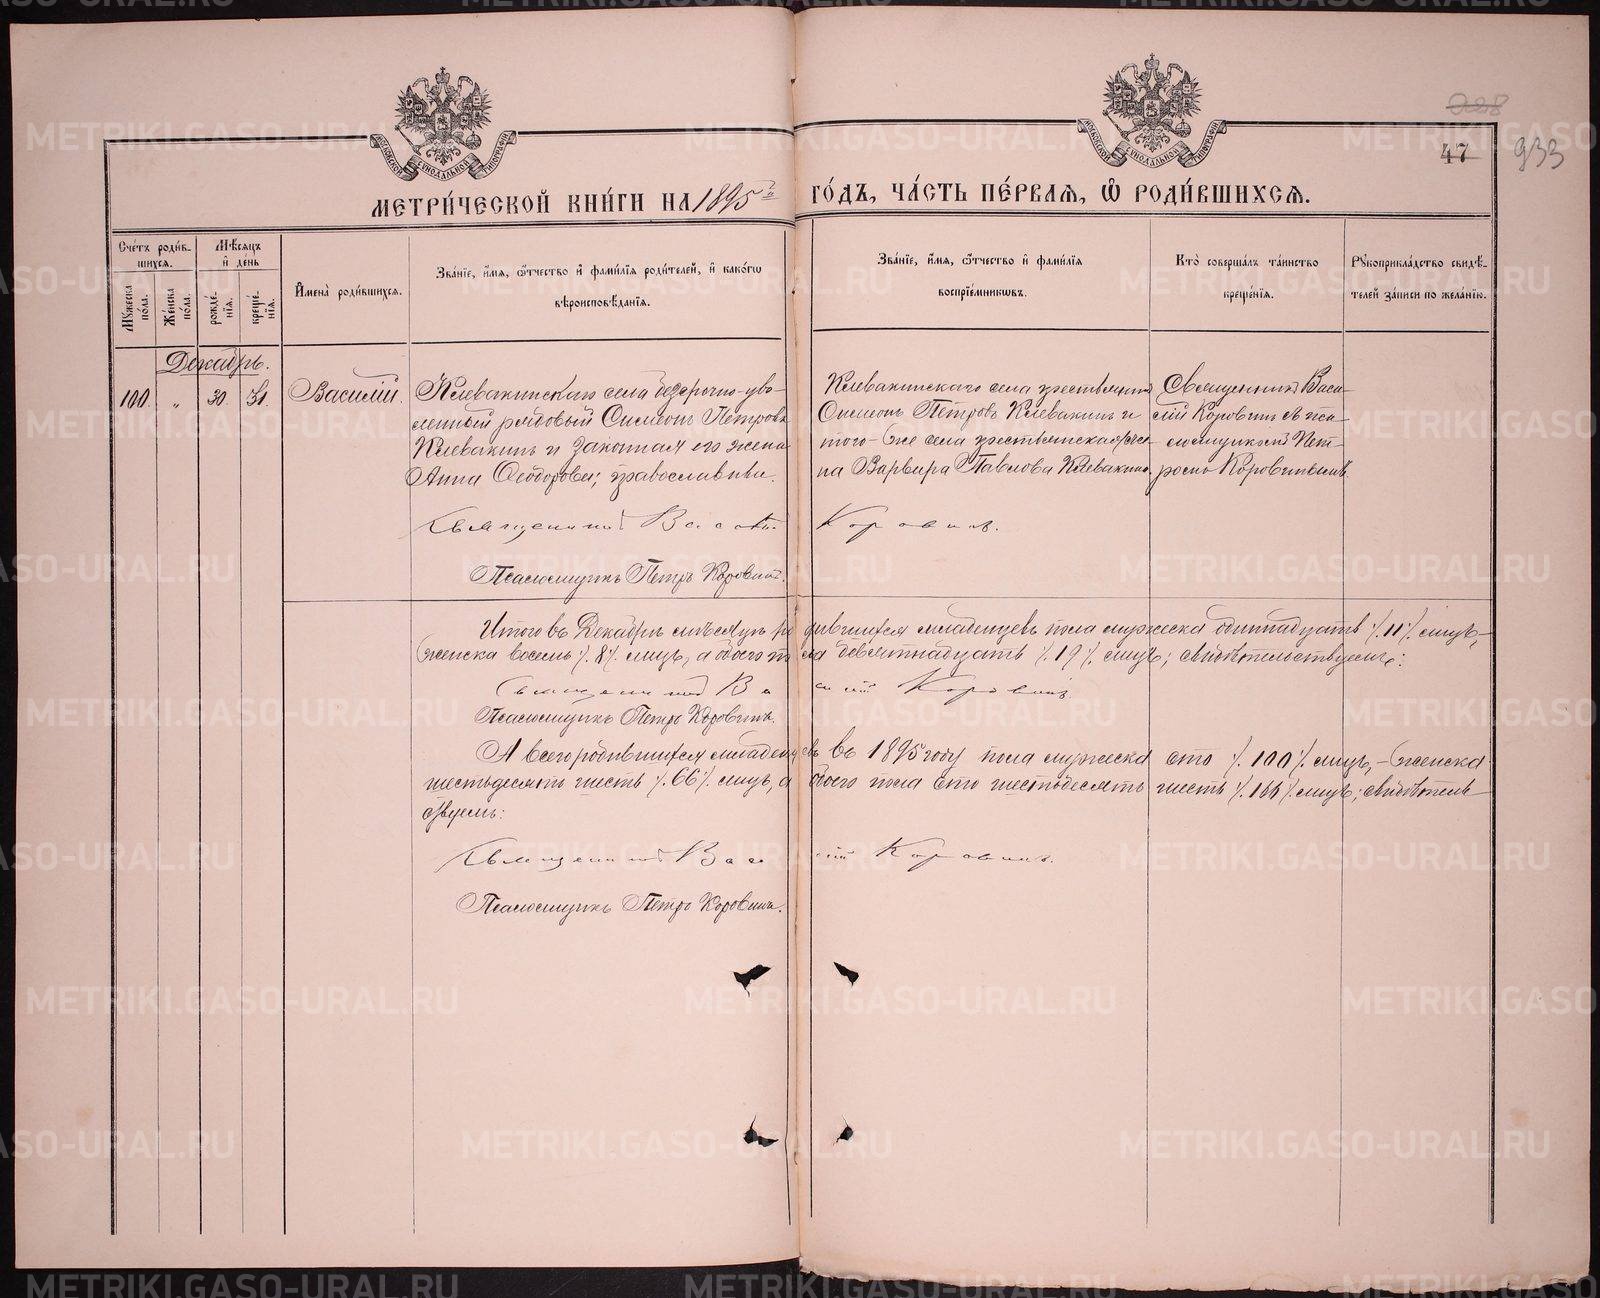 228
47
933
МЕТРИ́ЧЕСКОЙ КНИ́ГИ НА 1895й ГО́ДЪ, ЧА́СТЬ ПЕ́РВАѦ, Ѡ҆ РОДИ́ВШИХСѦ.
Сче́тъ роди́в-
шихсѧ.
Мѣ́сѧцъ
и҆ де́нь
Мꙋ́жеска по́ла.
Же́нска по́ла.
рожде́-
нїѧ.
креще́-
нїѧ.
И҆мена̀ роди́вшихсѧ.
Зва́нїе, и҆́мѧ, ѻ҆́тчество и҆ фами́лїѧ роди́телей, и҆ како́гѡ
вѣроисповѣ́данїѧ.
Зва́нїе, и҆́мѧ, ѻ҆́тчество и҆ фами́лїѧ
воспрїе́мникѡвъ.
Кто̀ соверша́лъ та́инство
креще́нїѧ.
Рꙋкоприкла́дство свидѣ́-
телей за́писи по жела́нїю.
Декабрь.
100. „ 30 31 Василій.
Клевакинскаго села безсрочно-уво-
ленный рядовый Симеонъ Петровъ
Клевакинъ и законная его жена
Анна Ѳеодорова; православны.
Клевакинскаго села крестьянинъ
Симеонъ Петровъ Клевакинъ и
того-же села крестьянская же-
на Варвара Павлова Клевакина.
Священникъ Васи-
лій Коровинъ съ пса-
ломщикомъ Пет-
ромъ Коровинымъ.
Священникъ Василій Коровинъ.
Псаломщикъ Петръ Коровинъ.
Итого въ Декабрѣ мѣсяцѣ родившихся младенцевъ пола мужеска одиннадцать ⁒11⁒ лицъ,-
женска восемь ⁒8⁒ лицъ, а обоего пола девятнадцать ⁒19⁒ лицъ; свидѣтельствуемъ:
Священникъ Василій Коровинъ
Псаломщикъ Петръ Коровинъ.
А всего родившихся младенцевъ въ 1895 году пола мужеска сто ⁒100⁒ лицъ,- женска
шестьдесятъ шесть ⁒66⁒ лицъ, а обоего пола сто шестьдесятъ шесть ⁒166⁒ лицъ; свидѣтель-
ствуемъ:
Священникъ Василій Коровинъ.
Псаломщикъ Петръ Коровинъ.
METRIKI.GASO-URAL.RU